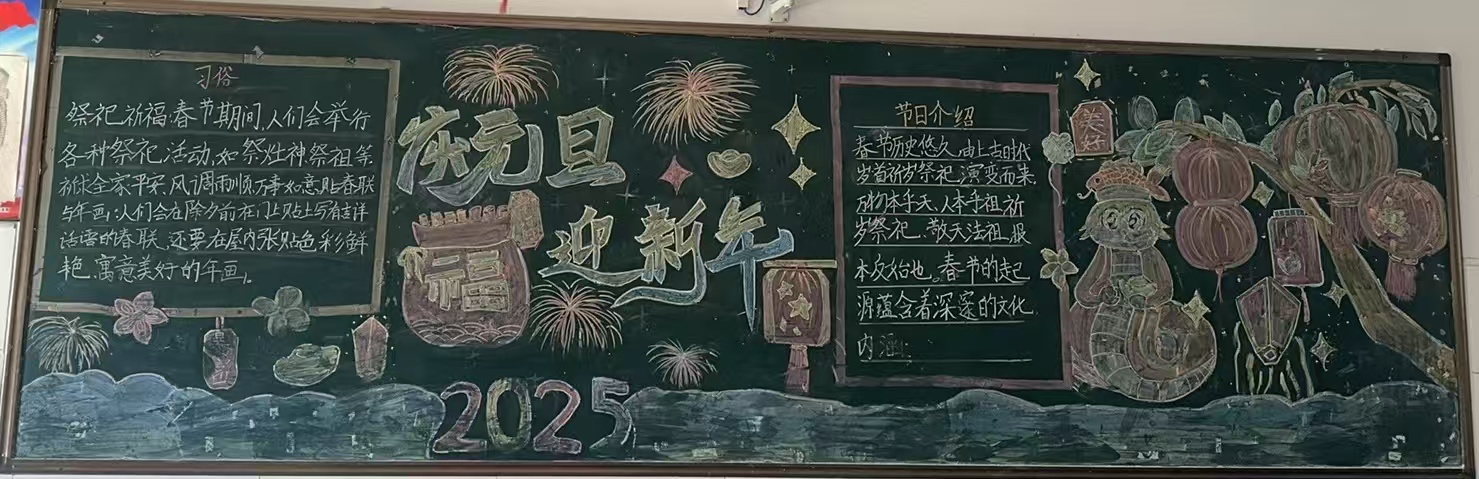 习俗
祭祀祈福:春节期间,人们会举行
各种祭祀活动,如祭灶神祭祖等
祈求全家平安,风调雨顺万事如意贴春联
与年画:人们会在除夕前在门上贴上写有吉祥
话语的春联,还要在屋内张贴色彩鲜
艳,寓意美好的年画。
庆元旦
迎新年
福
2025
节日介绍
春节历史悠久,由上古时代
岁首祈岁祭祀演变而来
万物本乎天,人本乎祖祈
岁祭祀、敬天法祖,报
本反始也。春节的起
源蕴含着深邃的文化
内涵
美好